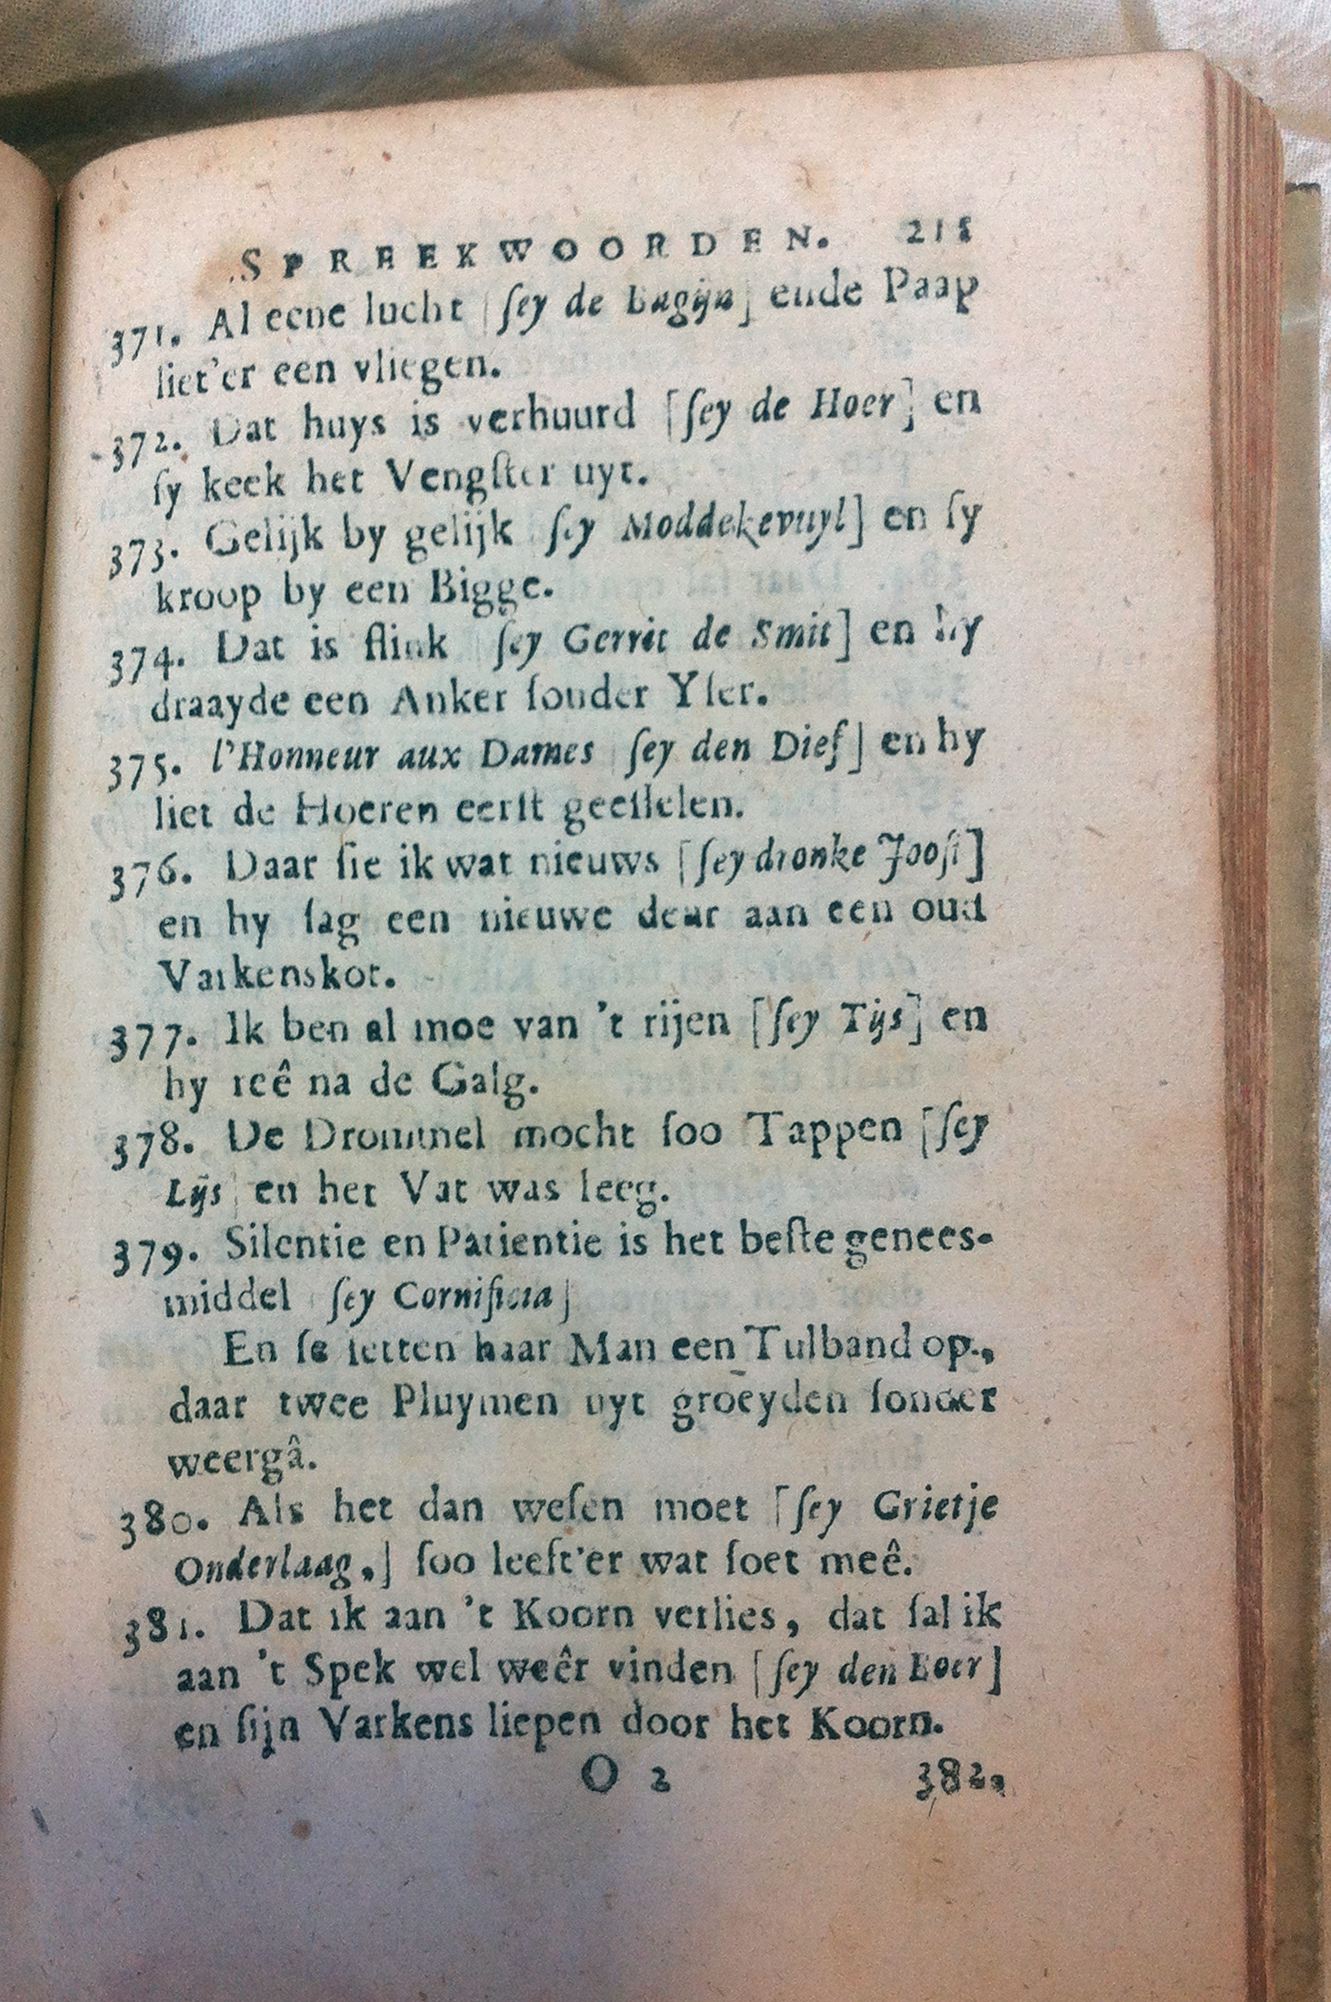 SPREEKWOORDEN. 215
371. Al eene lucht [ſey de Bagijn] ende Paap
liet'er een vliegen.
372. Dat huys is verhuurd [ſey de Hoer] en
ſy keek het Vengſter uyt.
373. Gelijk by gelijk [ſey Moddekevuyl] en ſy
kroop by een Bigge.
374. Dat is flink [ſey Gerrit de Smit] en hy
draayde een Anker ſonder Yſer.
375. l'Honneur aux Dames [ſey den Dief] en hy
liet de Hoeren eerſt geeſſelen.
376. Daar ſie ik wat nieuws [ſey dronke Jooſt]
en hy ſag een nieuwe deur aan een oud
Varkenskot.
377. Ik ben al moe van 't rijen [ſey Tijs] en
hy reê na de Galg.
378. De Drommel mocht ſoo Tappen [ſey
Lijs] en het Vat was leeg.
379. Silentie en Patientie is het beſte genees-
middel [ſey Cornificia]
En ſe ſetten haar Man een Tulband op,
daar twee Pluymen uyt groeyden ſonder
weergâ.
380. Als het dan weſen moet [ſey Grietje
Onderlaag,] ſoo leeſt'er wat ſoet meê.
381. Dat ik aan 't Koorn verlies, dat ſal ik
aan 't Spek wel weêr vinden [ſey den Boer]
en ſijn Varkens liepen door het Koorn.
O 2 382.